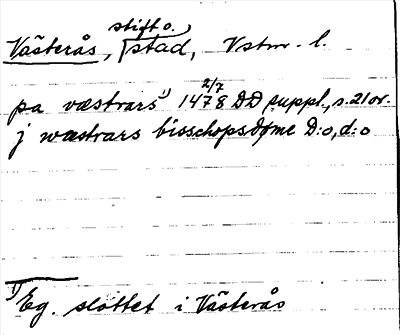 Västerås, stift o. stad, Vstm. l.
pa væstrars¹⁾ 1478 2/7 DD suppl., s. 21 or.
j wæstrars bisschopsdøme D:o, d:o
¹⁾ Eg. slottet i Västerås